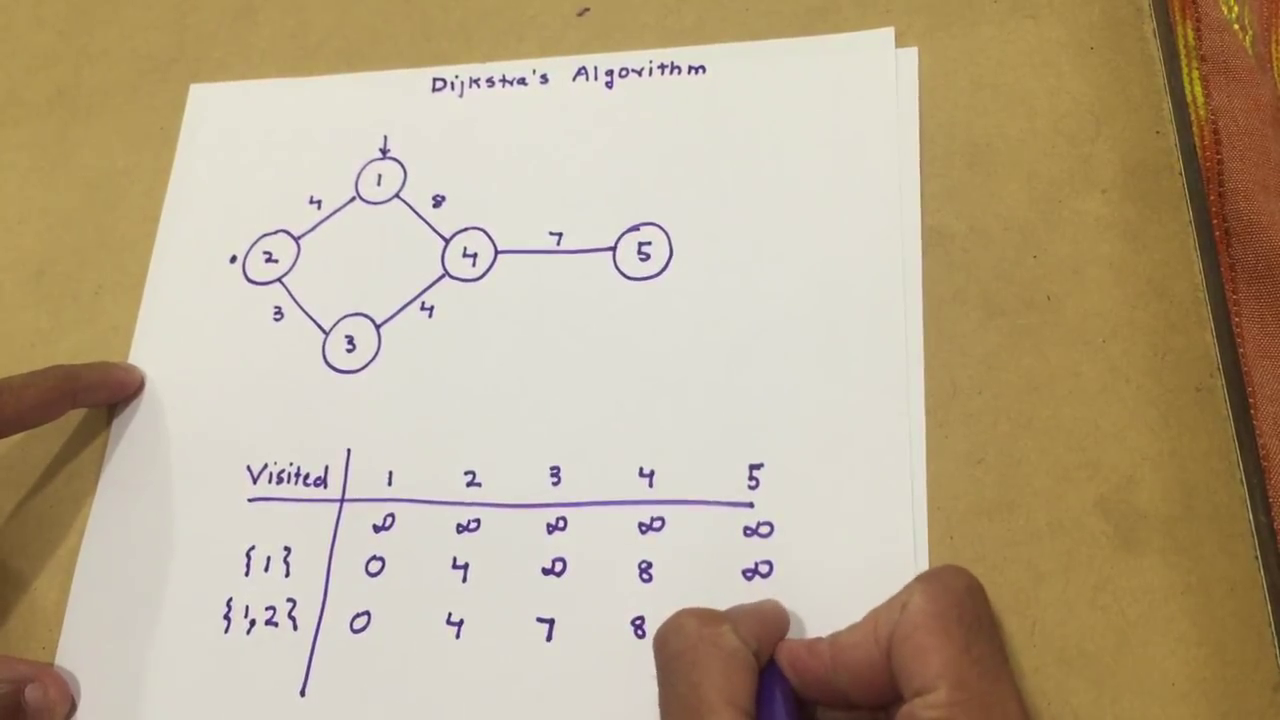 Dijkstra's Algorithm
1
4 8
2 4 7 5
3 4
3
Visited 1 2 3 4 5
∞ ∞ ∞ ∞ ∞
{1} 0 4 ∞ 8 ∞
{1,2} 0 4 7 8